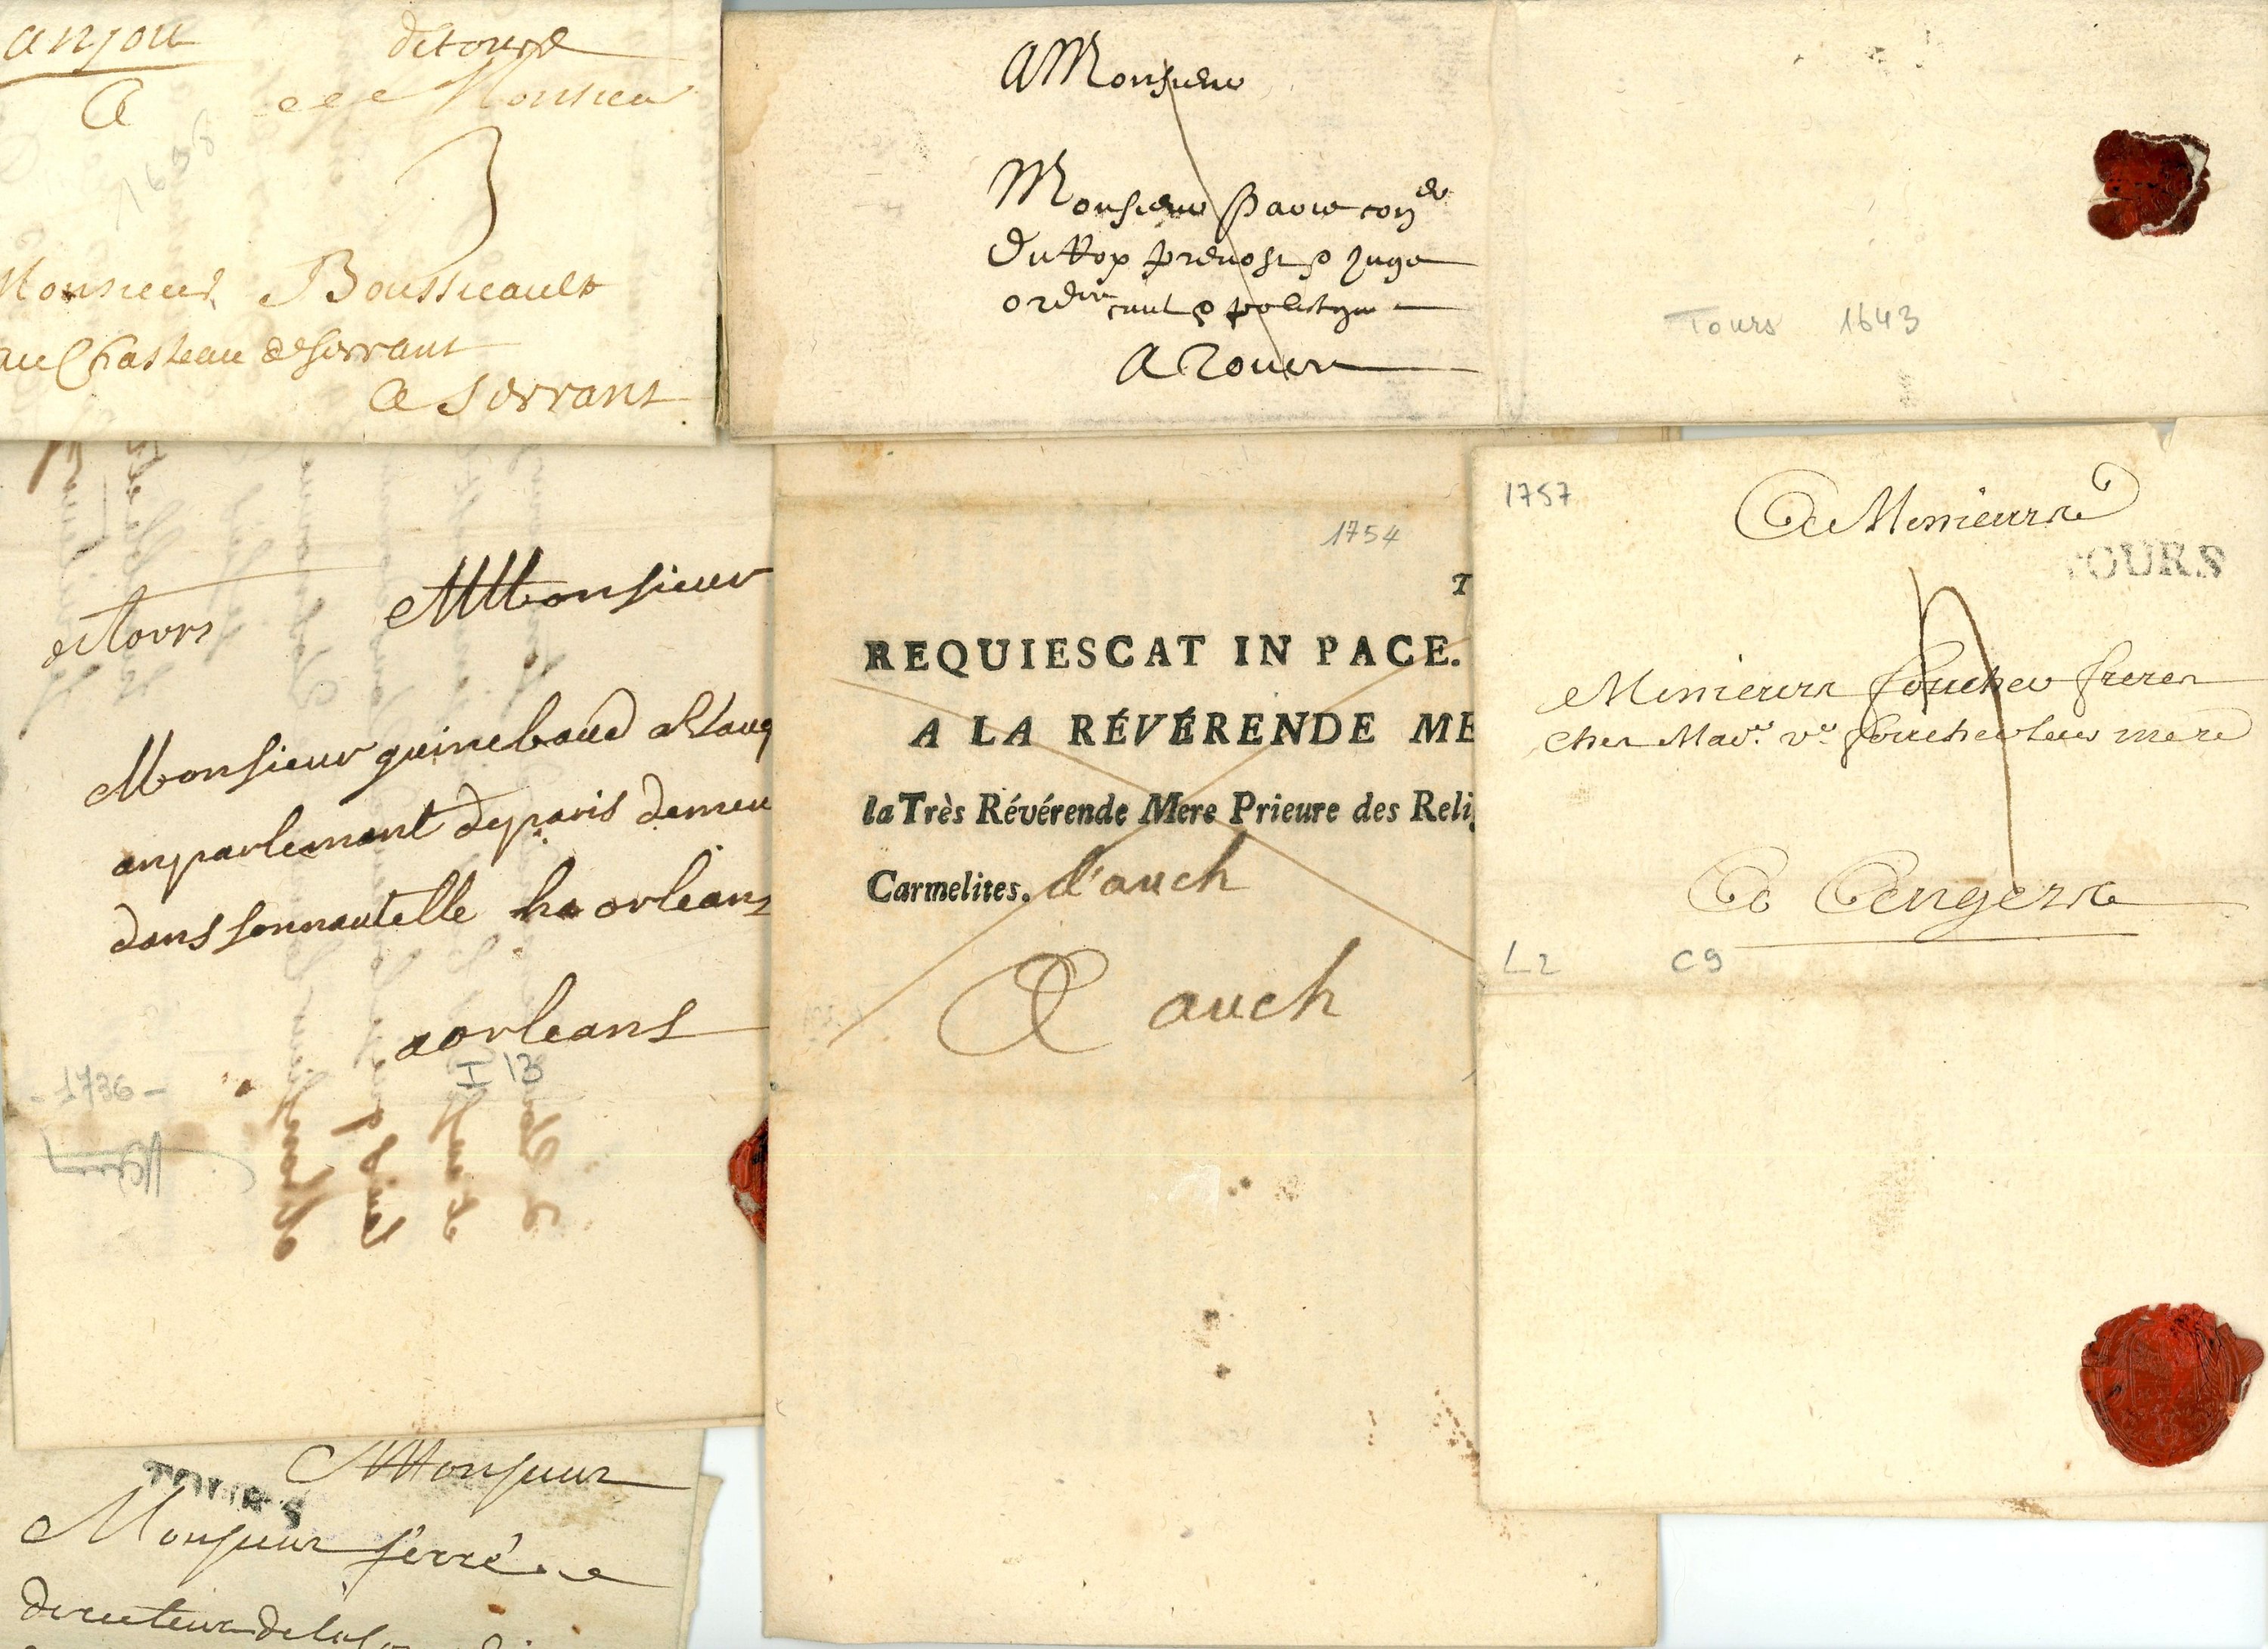 anjou detours
A Monsieur
1698
3
Monsieur Boussicault
au Chasteau de serrant
A serrant
A Monsieur
Monsieur
du Roy prevost & juge
A Tours 1643
de tours
A Monsieur
Monsieur guinebaud
au parlement de paris demeu
dans sonnautelle ha orleans
a orleans
I 13
- 1736 -
1754
T
REQUIESCAT IN PACE.
A LA RÉVÉRENDE ME
la Très Révérende Mere Prieure des Reli
Carmelites. d'auch
A auch
1757
A Messieurs
TOURS
4
Messieurs foucher freres
chez Mad.e v.e foucher leur mere
A Angers
L2 C9
TOURS
A Monsieur
Monsieur ferré
directeur de la